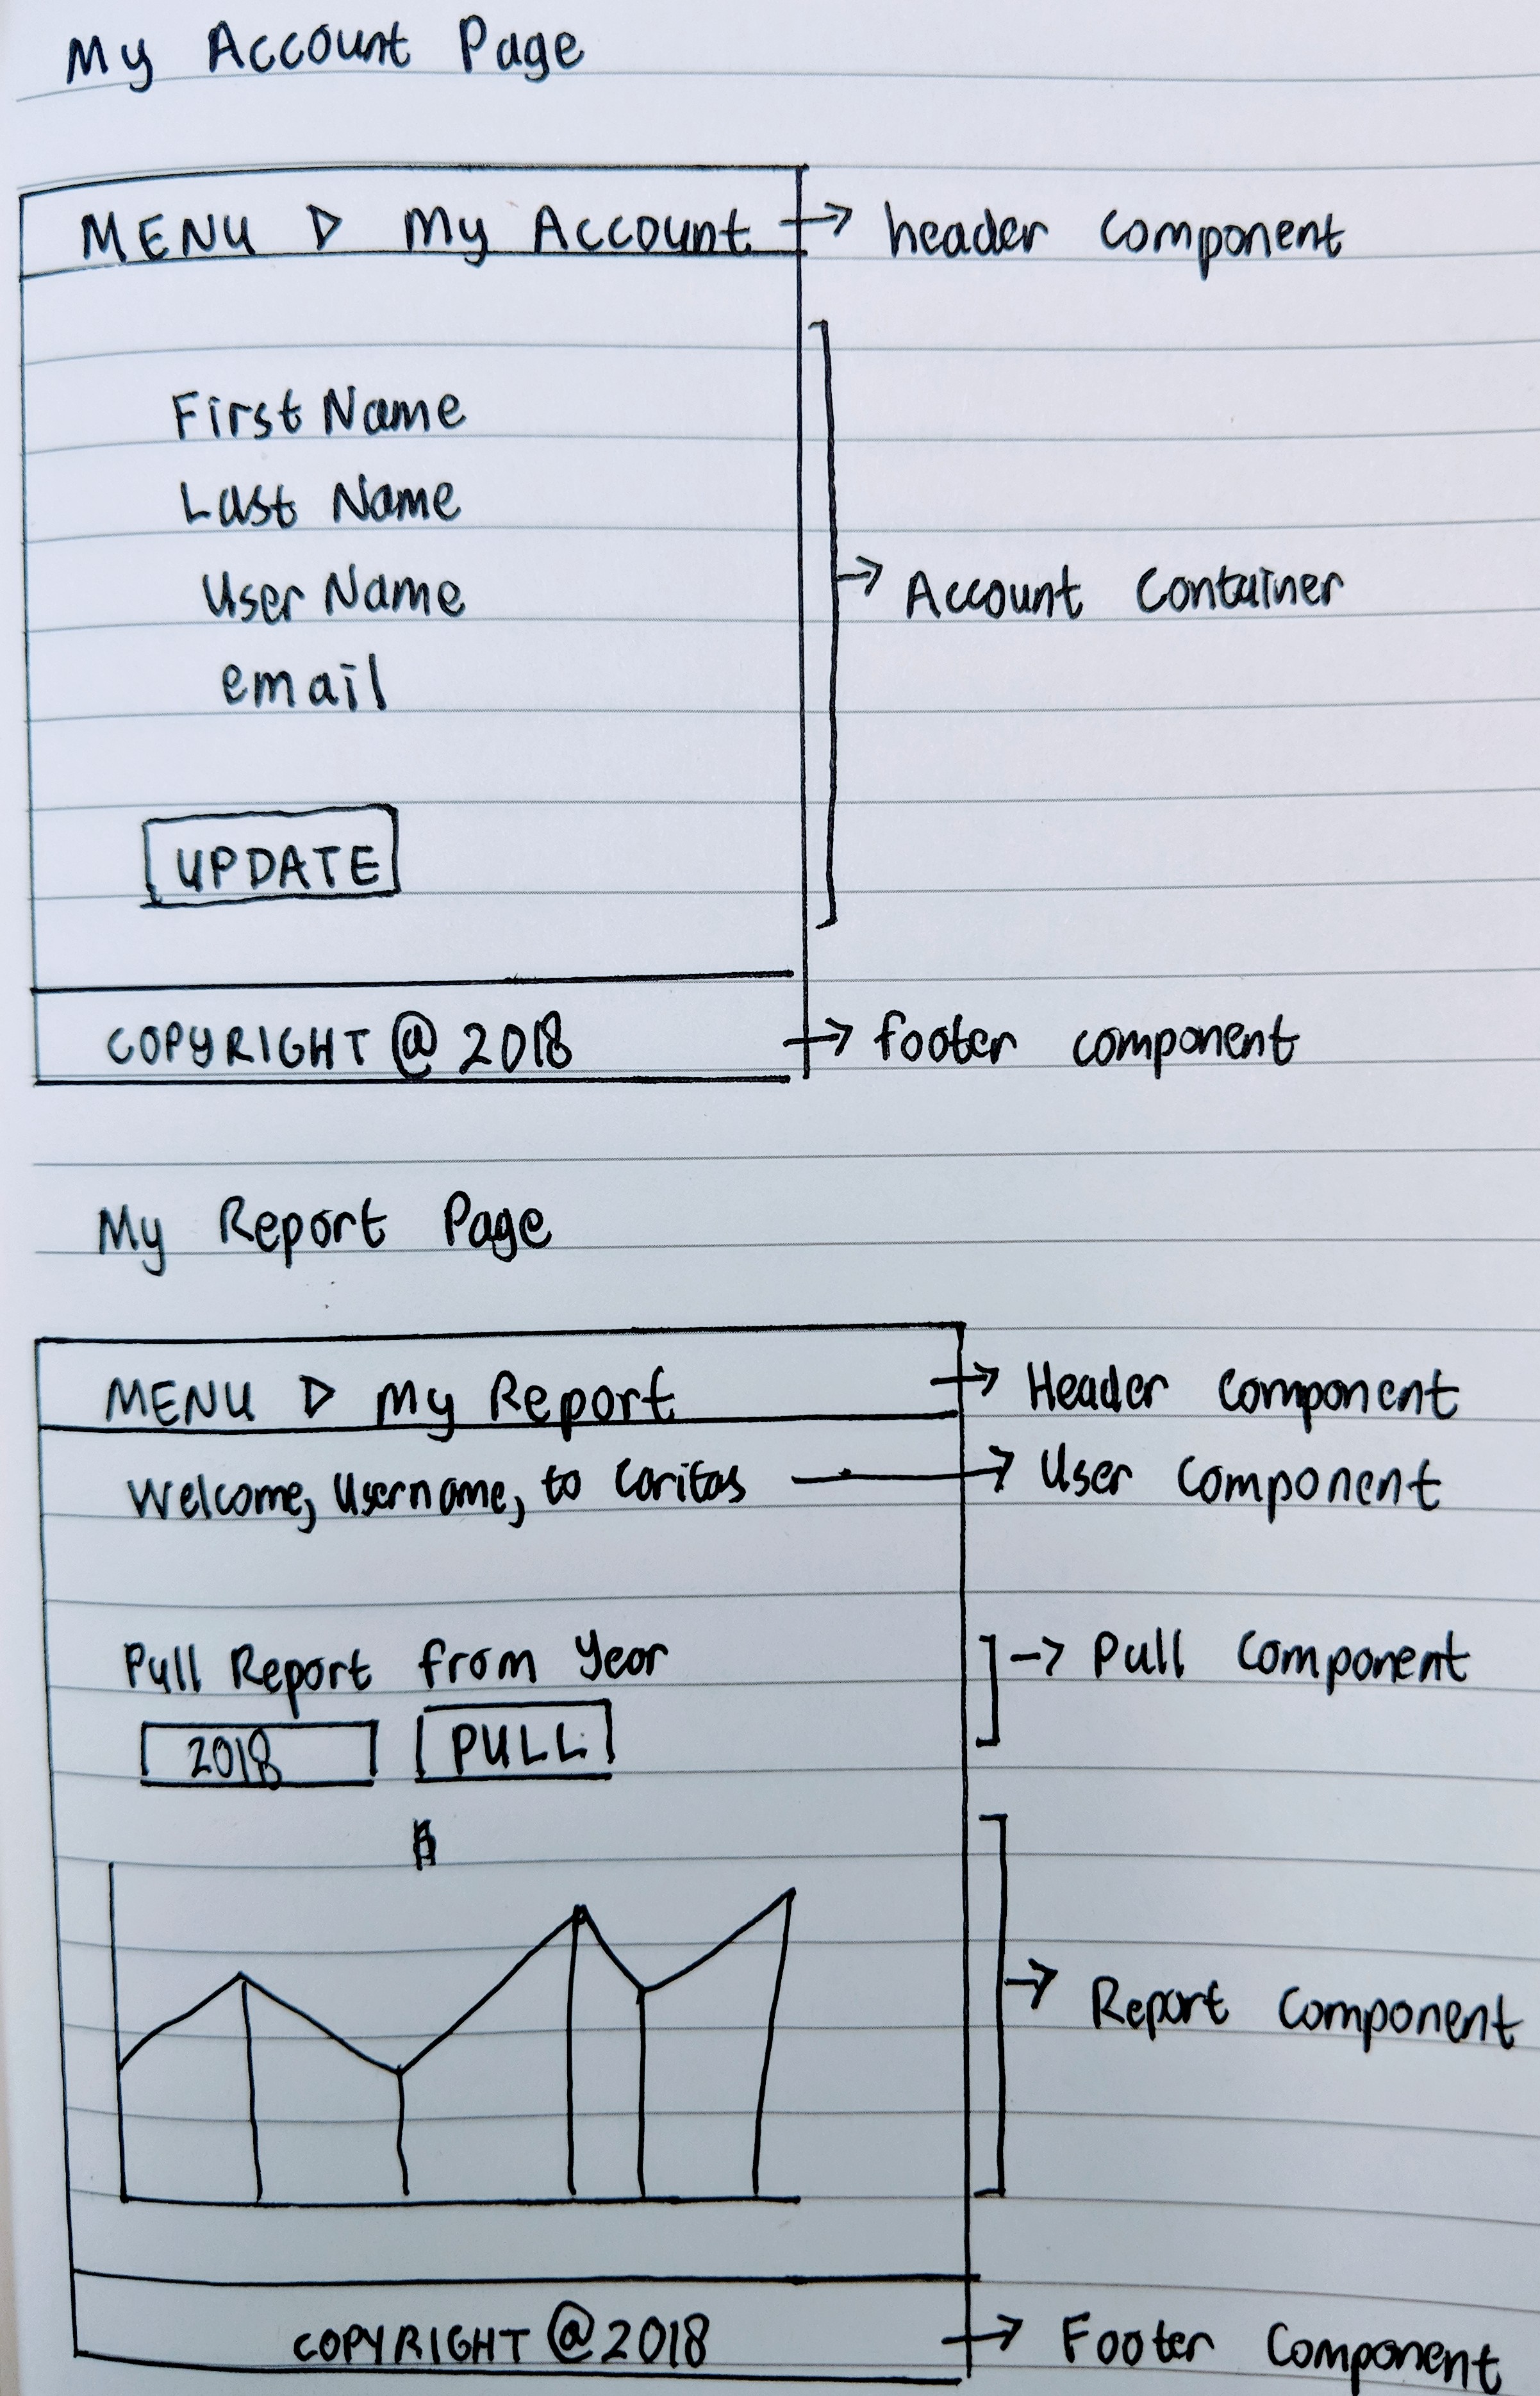 My Account Page
MENU ▷ My Account → header component
First Name
Last Name
User Name
→ Account Container
email
UPDATE
COPYRIGHT @ 2018 → footer component
My Report Page
MENU ▷ My Report → Header Component
Welcome, Username, to Caritas → User Component
Pull Report from Year → Pull Component
2018 PULL
→ Report Component
COPYRIGHT @ 2018 → Footer Component